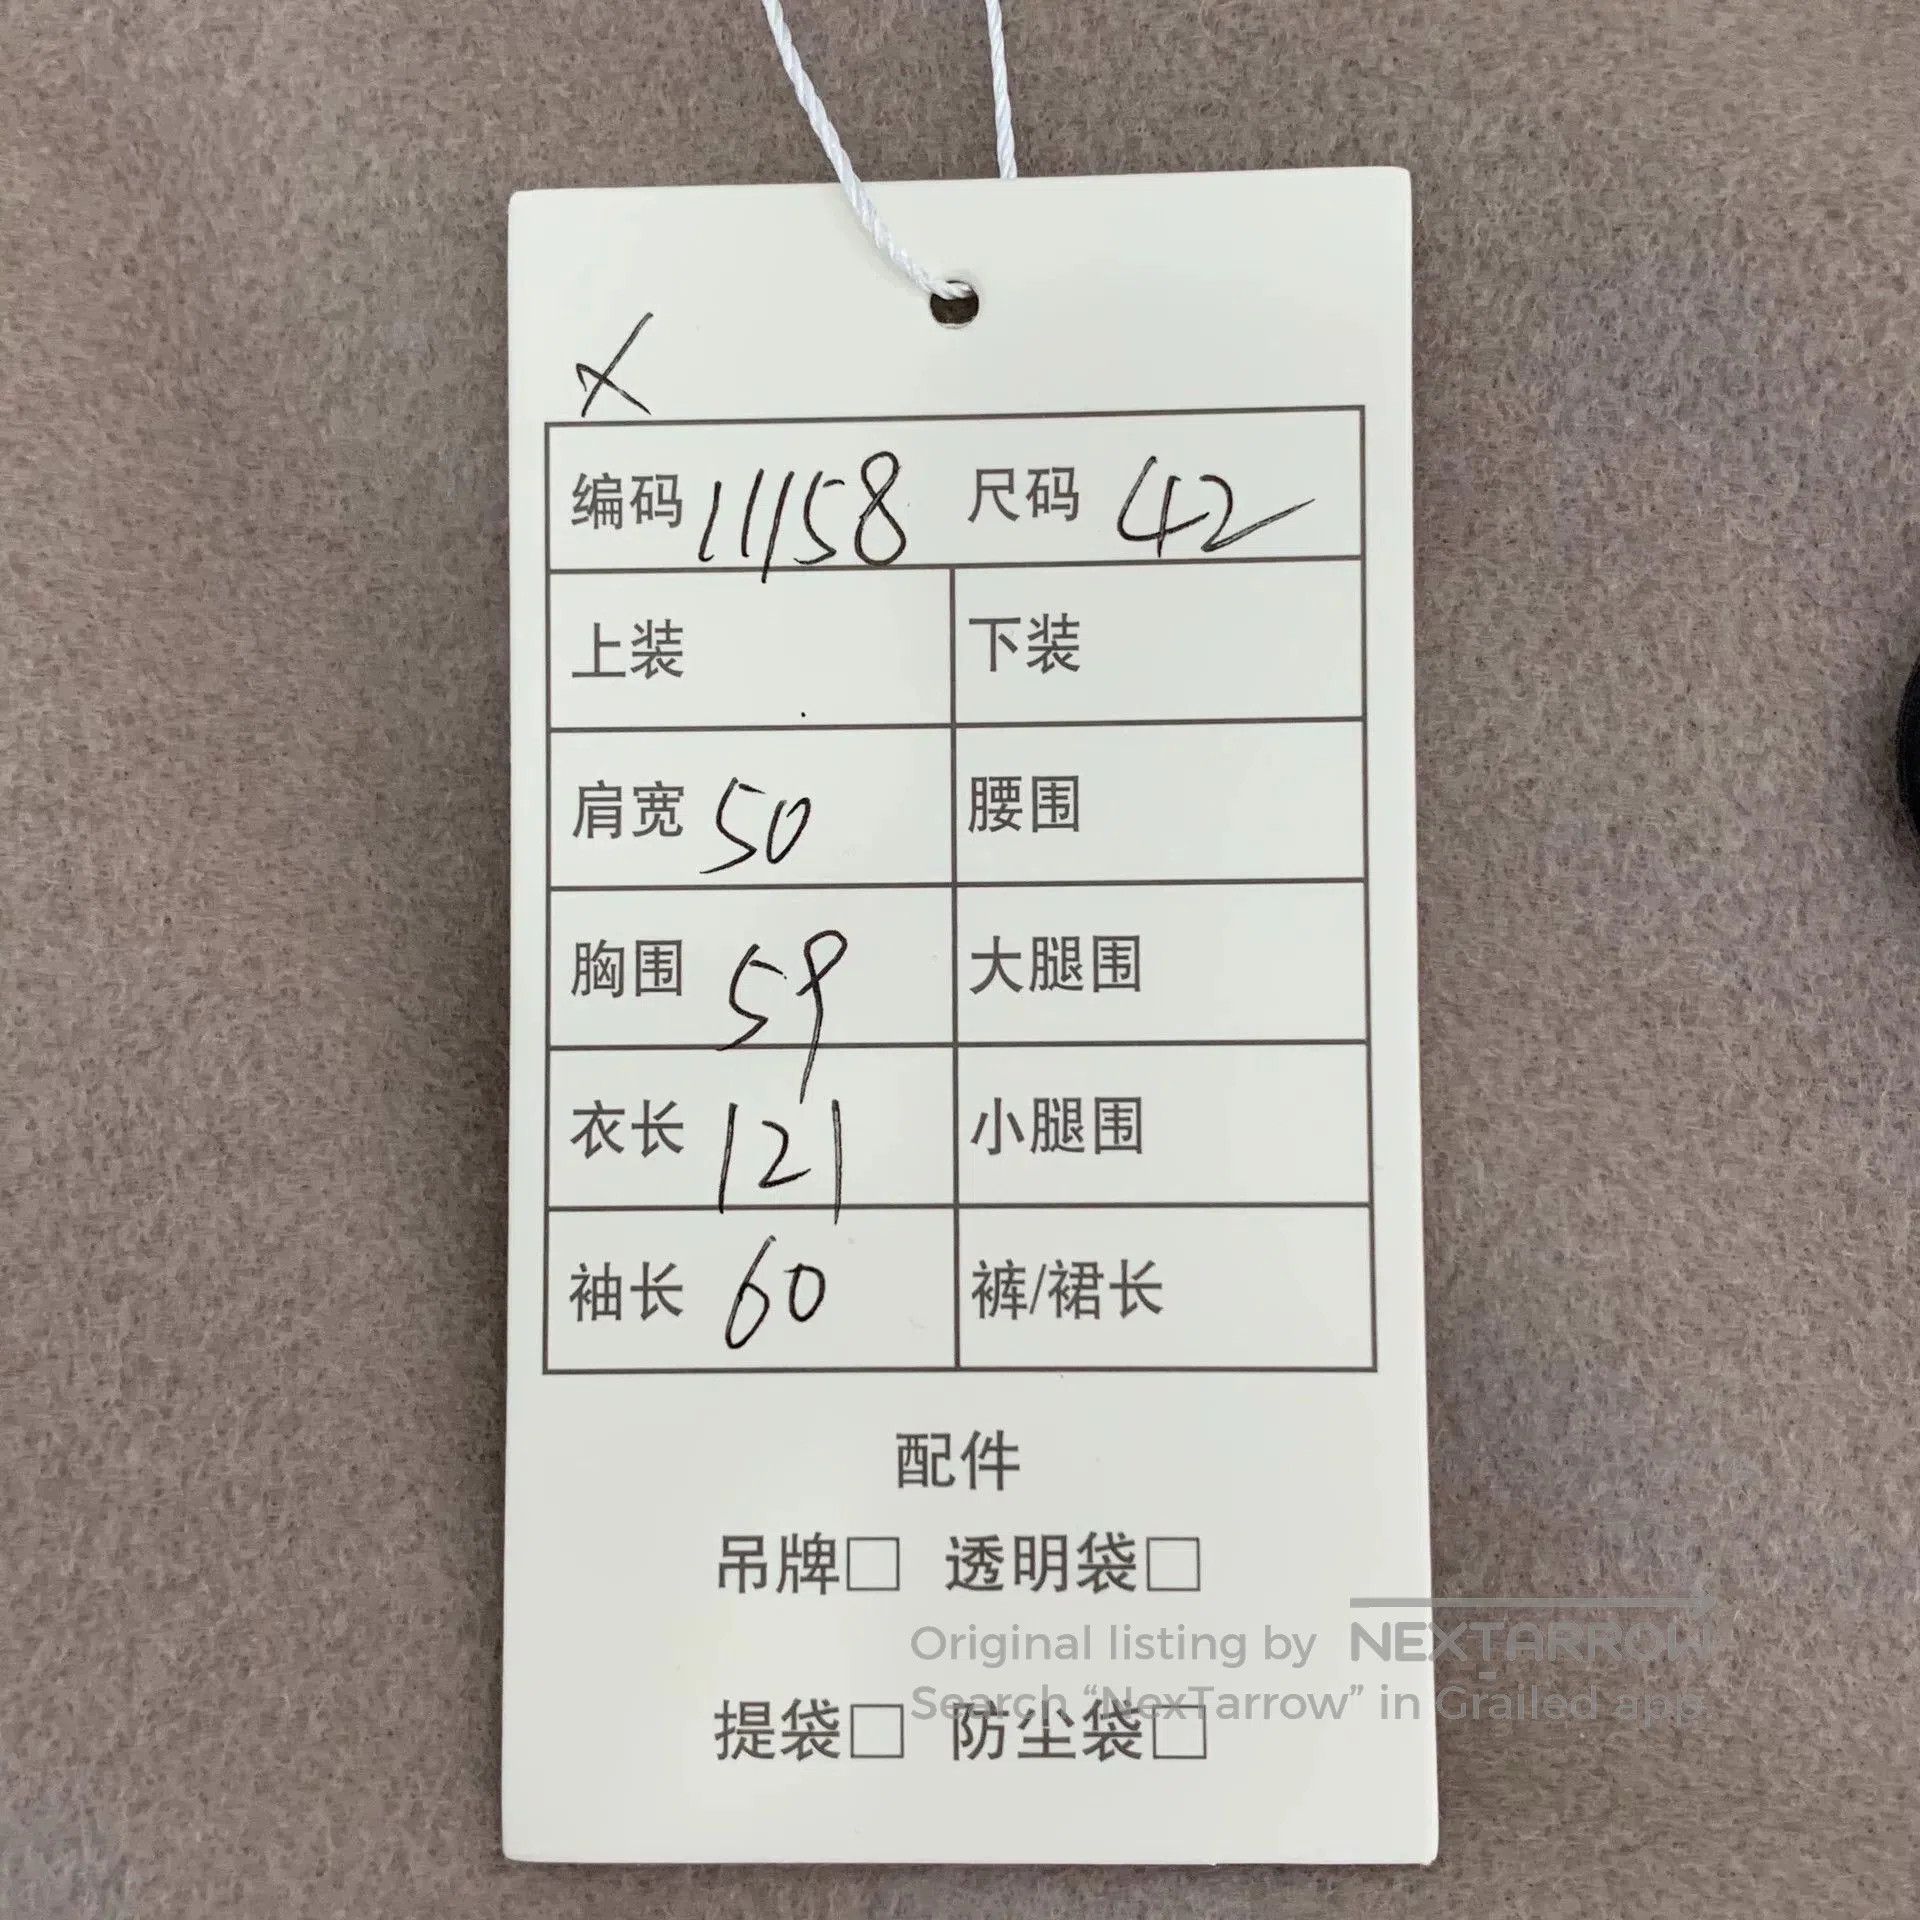 X
编码 11158 尺码 42
上装 下装
肩宽 50 腰围
胸围 59 大腿围
衣长 121 小腿围
袖长 60 裤/裙长
配件
吊牌□ 透明袋□
Original listing by NEXTARROW
Search “NexTarrow” in Grailed app.
提袋□ 防尘袋□